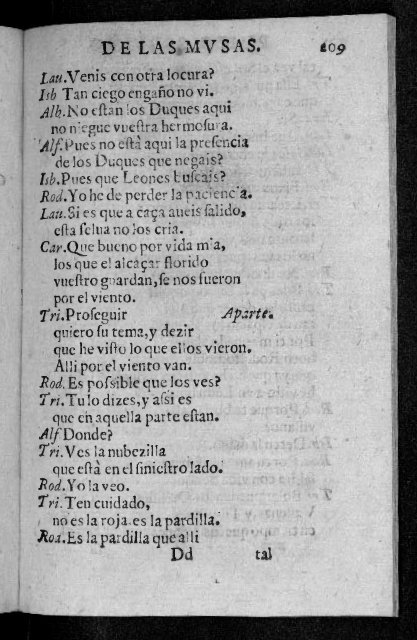 DE LAS MVSAS. 209
Lau. Venis con otra locura?
Isb Tan ciego engaño no vi.
Alb. No estan los Duques aqui
no niegue vuestra hermosura.
Alf. Pues no està aqui la presencia
de los Duques que negais?
Isb. Pues que Leones buscais?
Rod. Yo he de perder la paciencia.
Lau. Si es que a caça aueis salido,
esta selua no los cria.
Car. Que bueno por vida mia,
los que el alcaçar florido
vuestro guardan, se nos fueron
por el viento.
Tri. Proseguir Aparte.
quiero su tema, y dezir
que he visto lo que ellos vieron.
Alli por el viento van.
Rod. Es possible que los ves?
Tri. Tu lo dizes, y assi es
que en aquella parte estan.
Alf Donde?
Tri. Ves la nubezilla
que està en el siniestro lado.
Rod. Yo la veo.
Tri. Ten cuidado,
no es la roja es la pardilla.
Rod. Es la pardilla que alli
Dd tal